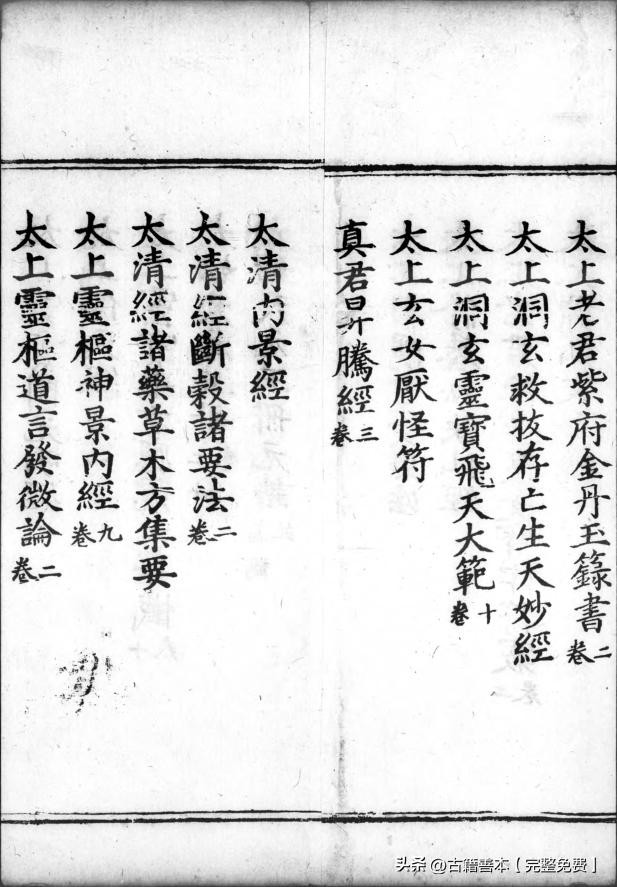 太上老君紫府金丹玉籙書二卷
太上洞玄救拔存亡生天妙經
太上洞玄靈寶飛天大範十卷
太上玄女厭怪符
真君昇騰經三卷
太清内景經
太清經斷穀諸要法二卷
太清經諸藥草木方集要
太上靈樞神景內經九卷
太上靈樞道言發微論二卷
头条 @古籍善本【完整免费】